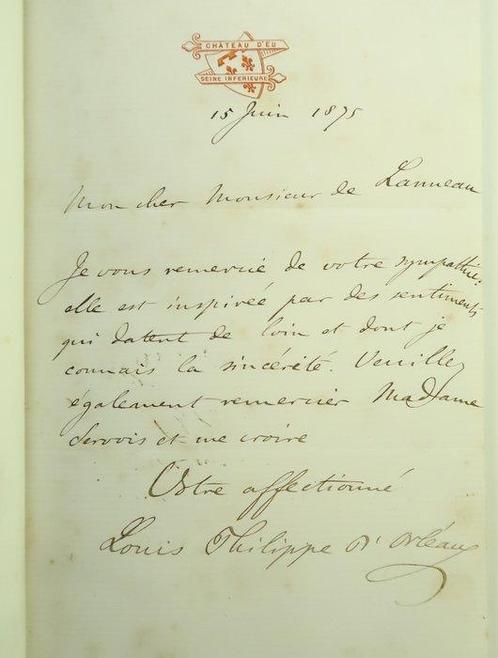 CHATEAU D'EU
SEINE INFERIEURE
15 Juin 1875
Mon cher Monsieur de Lanneau
Je vous remercie de votre sympathie:
elle est inspirée par des sentiments
qui datent de loin et dont je
connais la sincérité. Veuillez
également remercier Madame
Servois et me croire
Votre affectionné
Louis Philippe d'Orléans